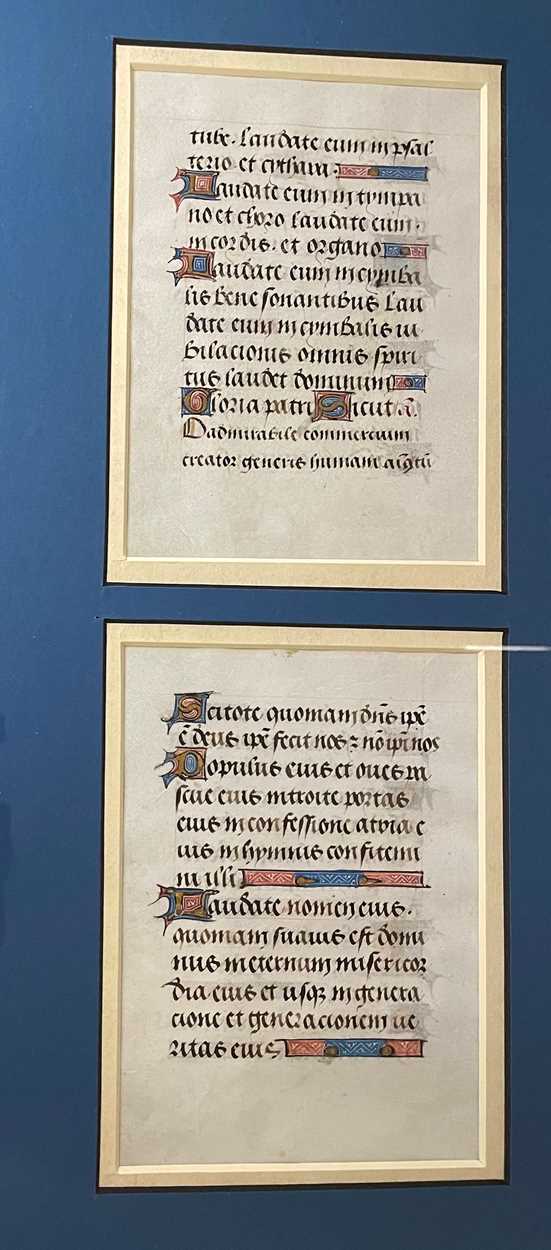 tube. Laudate eum in psal
terio et cythara.
Laudate eum in tympa
no et choro laudate eum.
in cordis. et organo
Laudate eum in cymba
lis bene sonantibus Lau
date eum in cymbalis iu
bilacionis omnis spiri
tus laudet dominum
Gloria patri Sicut
O admirabile commercium
creator generis humani
Scitote quoniam dn̄s ipē
ē deus ipē fecit nos ⁊ nō ipī nos
Populus eius et oues pa
scue eius introite portas
eius in confessione atria e
ius in hymnis confitemi
ni illi
Laudate nomen eius.
quoniam suauis est domi
nus in eternum misericor
dia eius et usqꝫ in genera
cione et generacionem ue
ritas eius